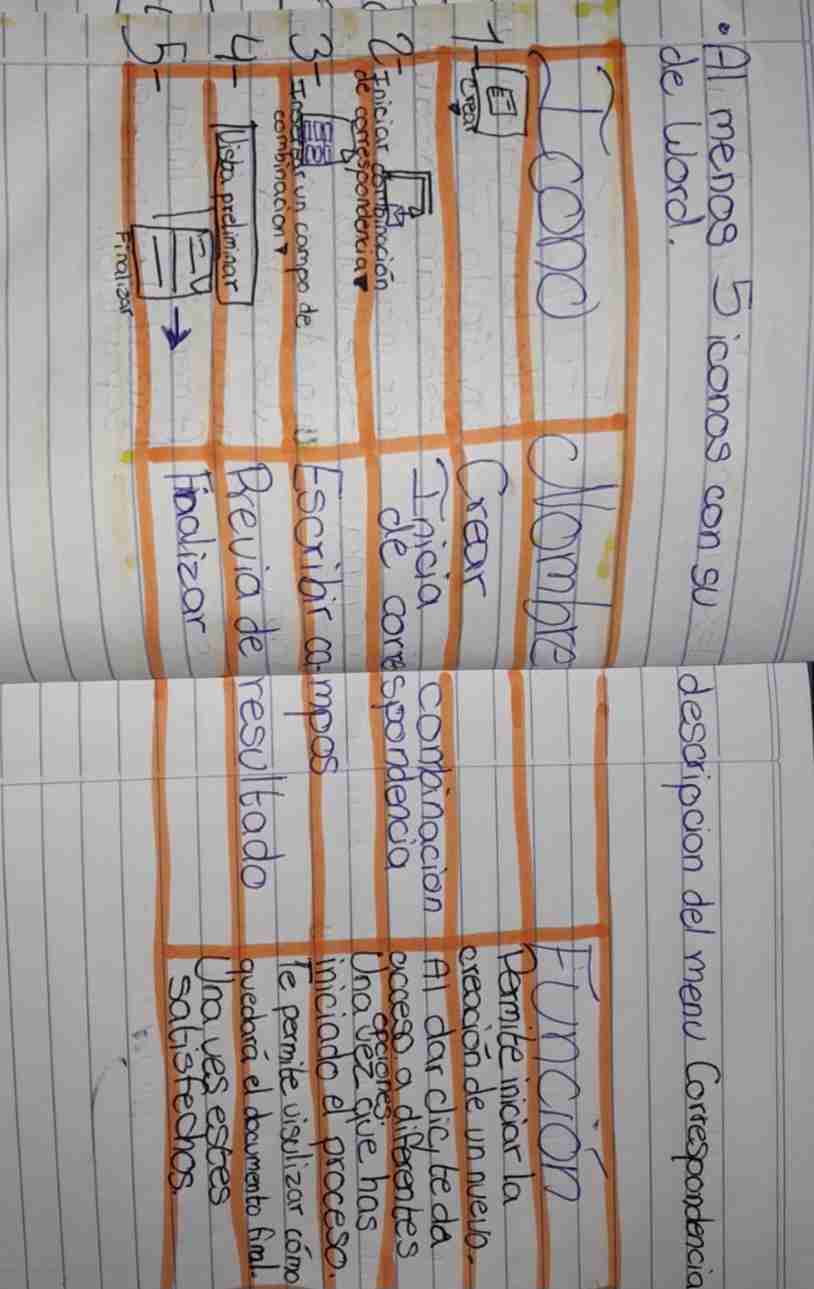 • Al menos 5 iconos con su descripcion del menu Correspondencia
de Word.
Icono Nombre Función
1- Crear Crear Permite iniciar la
creación de un nuevo.
2- Iniciar combinación
de correspondencia Inicia combinacion
de correspondencia Al dar clic, te da
acceso a diferentes
opciones.
3- Insertar un campo de
combinacion Escribir campos Una vez que has
iniciado el proceso.
4- Vista preliminar Previa de resultado Te permite visulizar cómo
quedará el documento final.
5- Finalizar Finalizar Una ves estes
satisfechos.